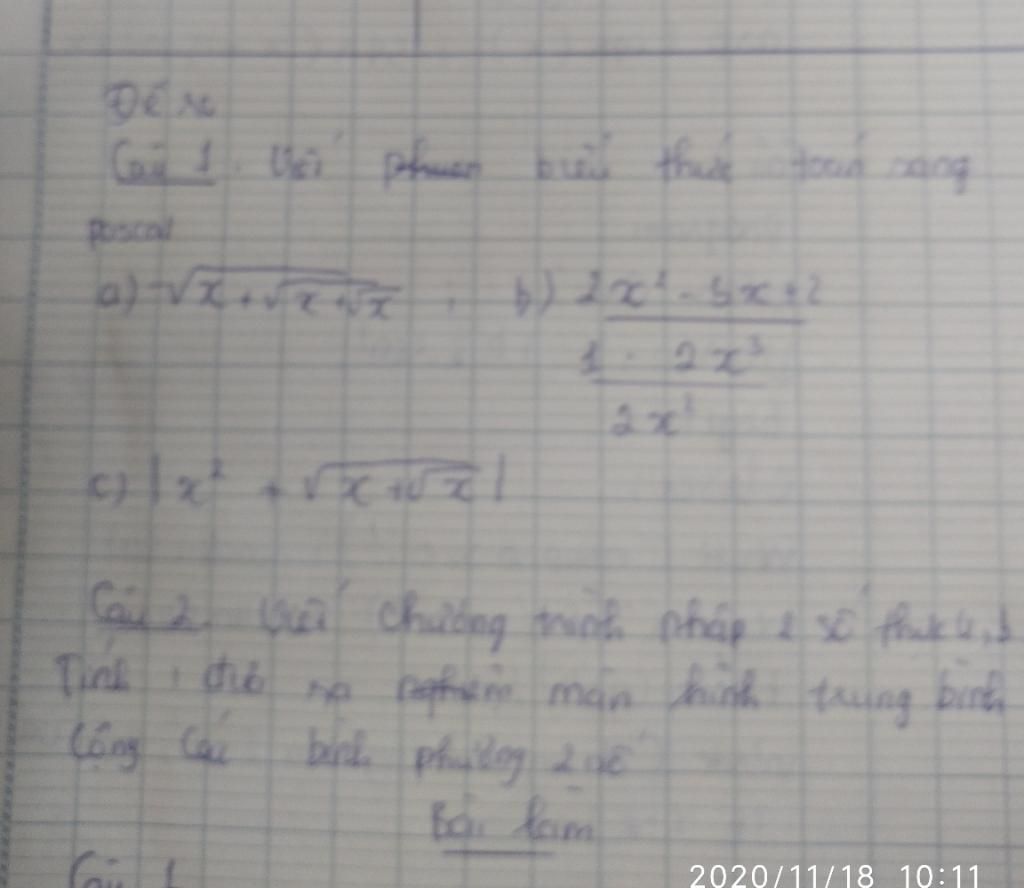 Đề ra
Câu 1. Viết biểu thức toán sang
pascal
a) √(x + √(x + √x)) b) 2x² - 5x + 2
2x³
2x
c) | x² + √(x + √x) |
Câu 2. Viết chương trình nhập 2 số thực
Tính, đưa ra màn hình trung bình
cộng các bình phương 2 số
Bài làm
Câu 1
2020/11/18 10:11